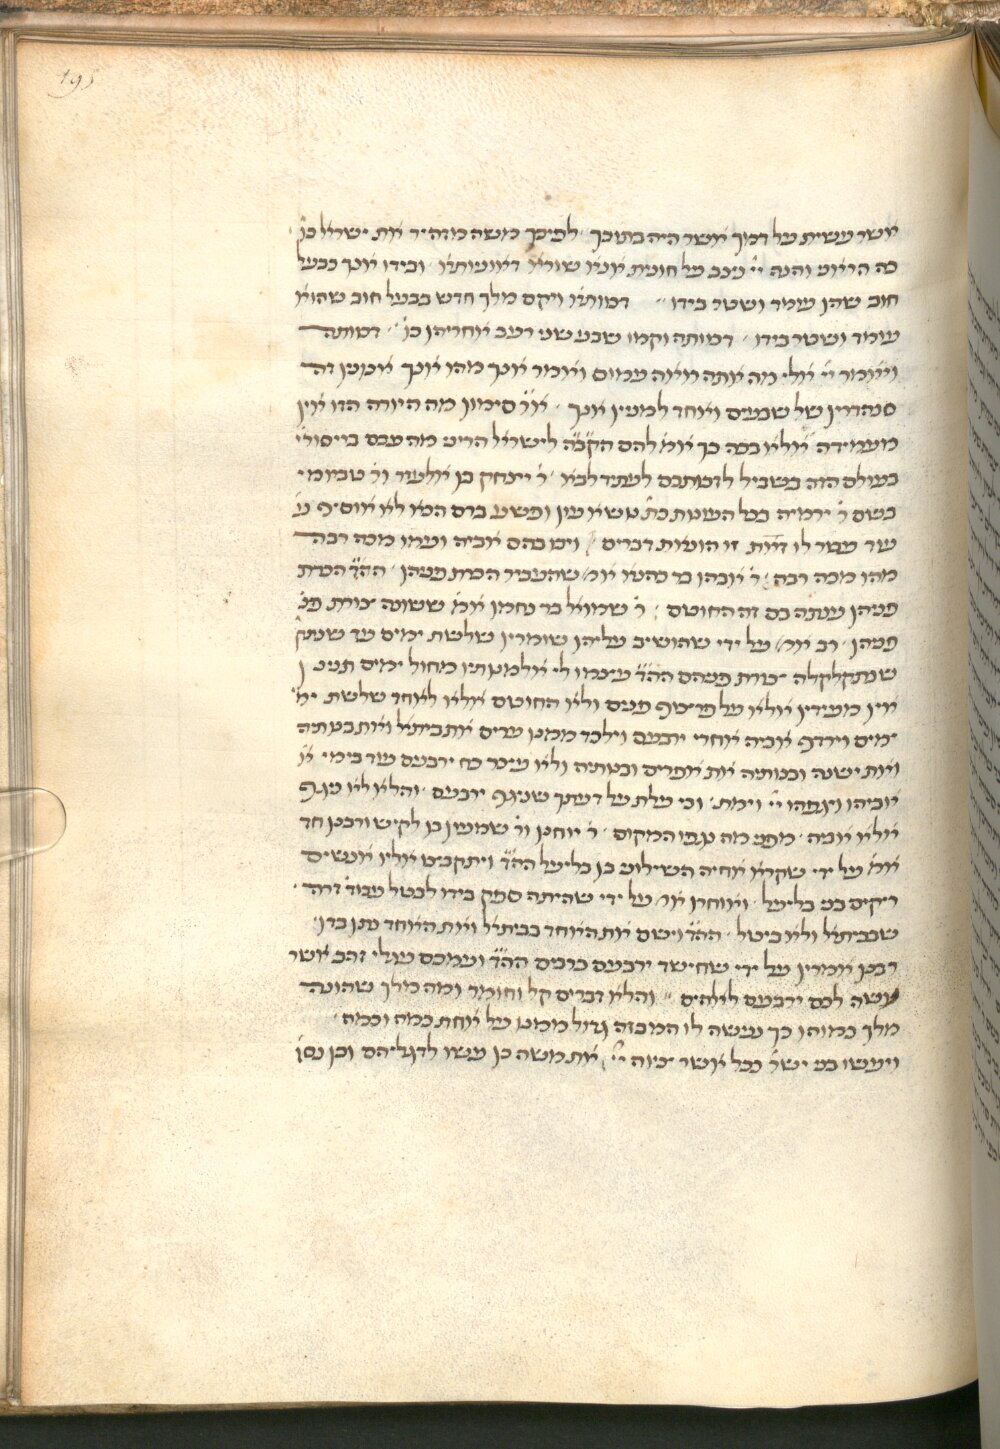 195
אשר עשית על דמך אשר היה בתוכך לפיכך משה מזהיר את ישראל בן
כה הראני והנה יי׳ נצב על חומת אנא שורא דאונותא ובידו אנך כבעל
חוב שהן עומד ושטר בידו דכוותא ויקם מלך חדש כבעל חוב שהוא
עומד ושטר בידו דכוותה וקמו שבע שני רעב אחריהן כו׳ דכוותה
ויאמר יי׳ אלי מה אתה רואה עמוס ואומר אנך מהו אנך
סנהדרין של שבעים ואחד כמניין אנך א׳ר סימון מה היורה הזו אין
מעמידה אלא בכה כך אמ׳ להם הק׳ב׳ה לישראל הריני מה עבם בייסורי׳
בעולם הזה בשביל לזכותכם לעתיד לבא ר׳ יצחק בן אלעזר ור׳ טביומי
בשם ר׳ ירמיה בכל העונות כת׳ נושא עון ופשע ברם הכא לא אוסיף עו׳
עוד עבור לו זו הוניית דברים ויכו בהם אביה ועמו מכה רבה
מהו מכה רבה ר׳ אבהו בר כהנא אמ׳ שהעביר הכרת פניהן ההד׳ הכרת
פניהן ענתה בם זה החוטם ר׳ שמואל בר נחמן אמ׳ ששונה צורת פנ׳
פניהן רב אמ׳ על ידי שהושיב עליהן שומרין שלשת ימים עד שנתק׳
שנתקלקלה צורת פניהם ההד׳ עצמו לי אלמנתיו מחול ימים תנינן
אין מעידין אלא על פרצוף פנים ולא החוטם אלא לאחר שלשת ימ׳
ימים וירדף אביה אחרי ירבעם וילכד ממנו ערים את ביתאל ואת בנותיה
ואת ישנה ובנותיה את אפרים ובנותיה ולא עצר כח ירבעם עוד בימי א׳
אביהו ויגפהו יי׳ וימת וכי עלת על דעתך שניגף ירבעם והלא לא ניגף
אלא אביה מפני מה נגפו המקום ר׳ יוחנן ור׳ שמעון בן לקיש ורבנן חד
אמ׳ על ידי שקרא אחיה השילוני בן בליעל ההד׳ ויתקבצו אליו אנשים
ריקים בני בליעל ואוחרן אמ׳ על ידי שהיתה ספק בידו לבטל עבוד׳ זרה
שבביתאל ולא ביטל ההד׳ וישם את האחד בביתאל ואת האחד נתן בדן
רבנן אמרין על ידי שחישד ירבעם ברבים ההד׳ ועמכם עגלי זהב אשר
עשה לכם ירבעם לאלהים והלא דברים קל וחומר ומה מלך שהונה
מלך כמוהו כך ענשה לו המבזה גדול ממנו על אחת כמה וכמה
ויעשו בני ישר׳ ככל אשר ציוה יי׳ את משה כן עשו לדגליהם וכן נסו׳